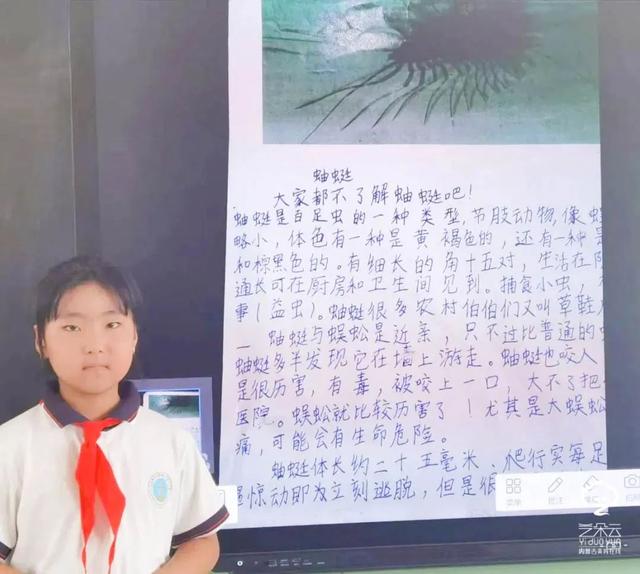 蚰蜒
大家都不了解蚰蜒吧！
蚰蜒是百足虫的一种类型，节肢动物，像
略小，体色有一种是黄褐色的，还有一种是
和棕黑色的。有细长的角十五对，生活在阴
通长可在厨房和卫生间见到。捕食小虫，
事（益虫）。蚰蜒很多农村伯伯们又叫草鞋
蚰蜒与蜈蚣是近亲，只不过比普通的
蚰蜒多半发现它在墙上游走。蚰蜒也咬人
是很厉害，有毒，被咬上一口，大不了把
医院。蜈蚣就比较厉害了！尤其是大蜈蚣
痛，可能会有生命危险。
蚰蜒体长约二十五毫米、爬行实每足
惊动即为立刻逃脱，但是很
菜单
批注
艺朵云
Yiduoyun